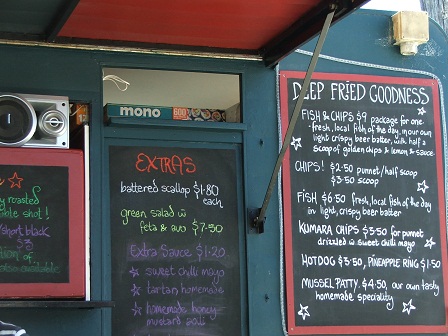 mono 600
y roasted
ble shot!
/short black
$3
tion of
also available
EXTRAS
battered scallop $1.80
each
green salad w
feta & avo $7.50
Extra Sauce $1.20
sweet chilli mayo
tartan homemade
homemade honey
mustard
DEEP FRIED GOODNESS
FISH & CHIPS $9 package for one
fresh, local fish of the day, in our own
light crispy beer batter, with half a
scoop of golden chips & lemon & sauce.
CHIPS! $2.50 punnet/half scoop
$3.50 scoop
FISH $6.50 fresh, local fish of the day
in light, crispy beer batter
KUMARA CHIPS $3.50 for punnet
drizzled w sweet chilli mayo
HOTDOG $3.50, PINEAPPLE RING $1.50
MUSSEL PATTY $4.50, our own tasty
homemade speciality